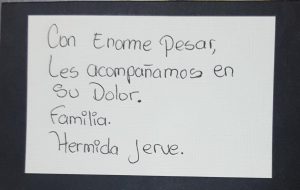 Con Enorme Pesar,
Les acompañamos en
su Dolor.
Familia.
Hermida Jerve.